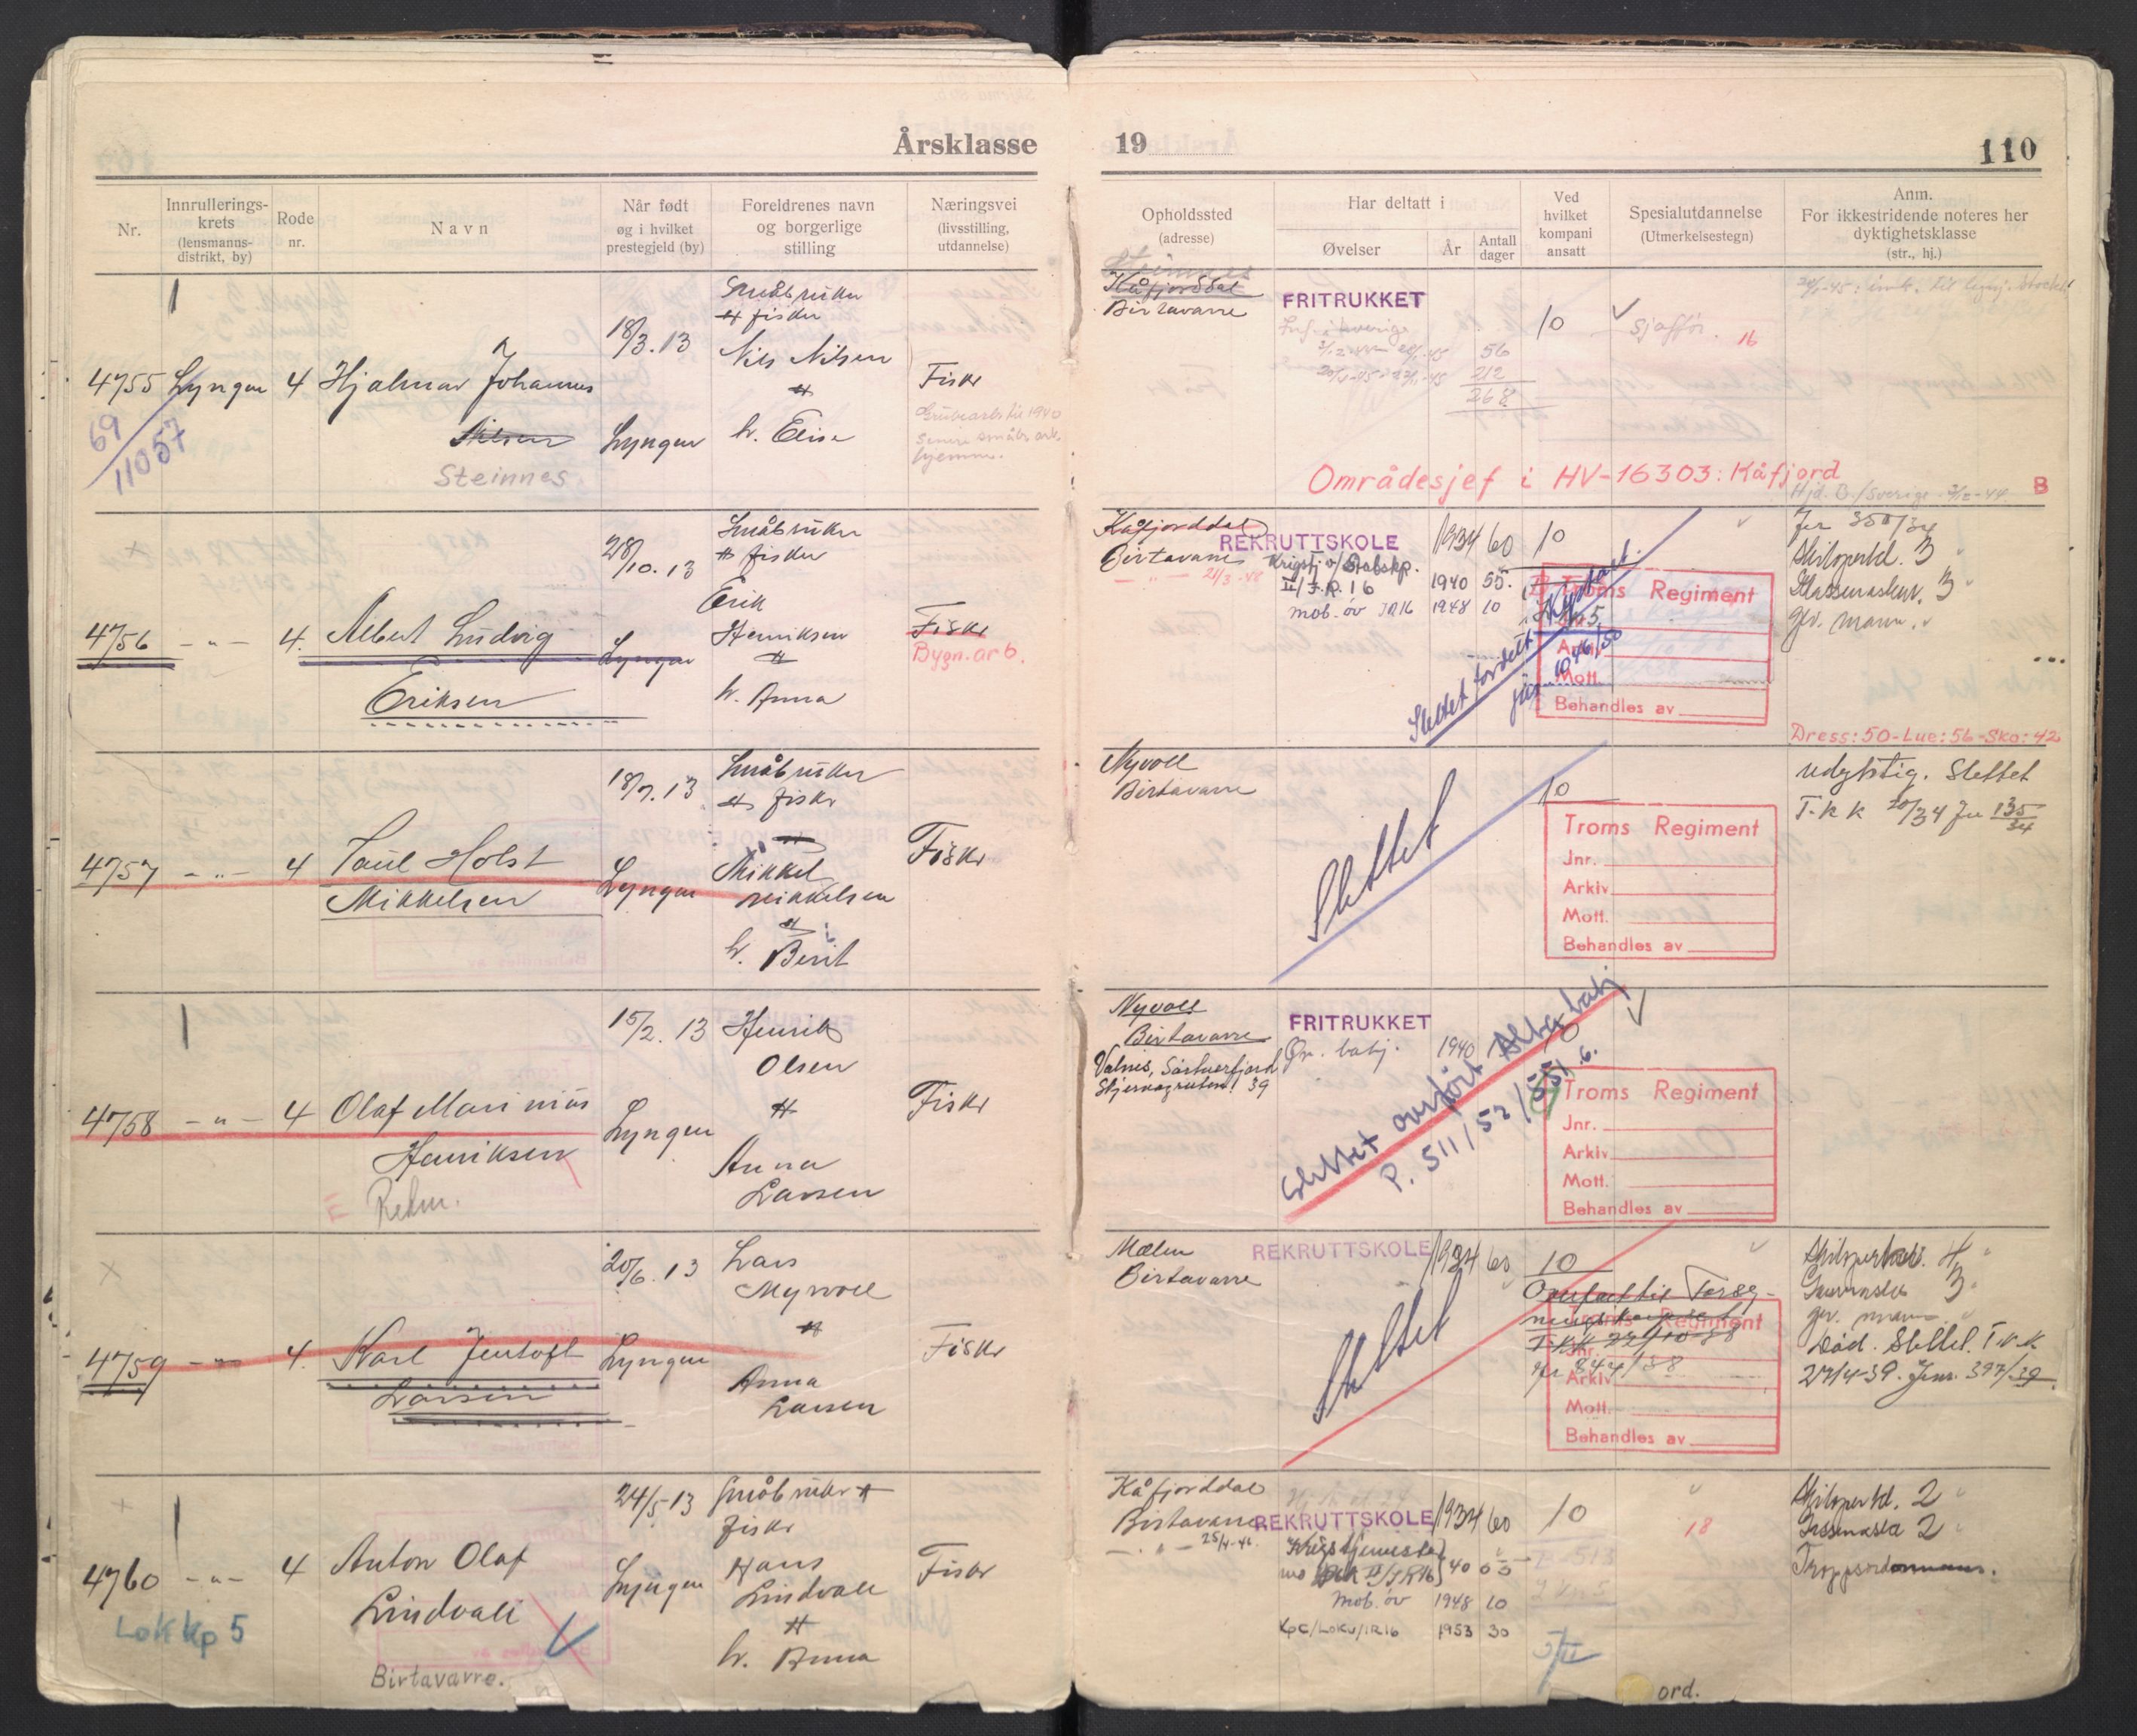 Årsklasse
19
110
Nr.
Innrullerings-
krets
(lensmanns-
distrikt, by)
Rode
nr.
Navn
Når født
og i hvilket
prestegjeld (by)
Foreldrenes navn
og borgerlige
stilling
Næringsvei
(livsstilling,
utdannelse)
Opholdssted
(adresse)
Har deltatt i
Øvelser
År
Antall
dager
Ved
hvilket
kompani
ansatt
Spesialutdannelse
(Utmerkelsestegn)
Anm.
For ikkestridende noteres her
dyktighetsklasse
(str., hj.)
4755 Lyngen 4 Hjalmar Johannes
Nilsen
Steinnes
69
11057
18/3.13
Lyngen
Småbruker
& fisker
Nils Nilsen
&
h. Elise
Fisker
Grubearb. til 1940
hjemme.
Steinnes
Kåfjorddal
Birtavarre
FRITRUKKET
56
212
268
10
sjåfør. 16
Områdesjef i HV-16303: Kåfjord
B
4756 - " - 4. Albert Ludvig
Eriksen
28/10.13
Lyngen
Småbruker
& fisker
Erik
Henriksen
&
h. Anna
Fisker
Bygn.arb.
Kåfjorddal
Birtavarre
- " - 21/3-48
REKRUTTSKOLE 1934 60 10
Krigstj. v/Stabskp.
II/I.R.16 1940 55.
mob. öv IR16 1948 10
Troms Regiment
Jnr.
Arkiv
Mott.
Behandles av
Jnr 350/34
Skiløperkl. 3
Klassemerke. 3
gev. mann.
Dress: 50 - Lue: 56 - Sko: 42
4757 - " - 4 Paul Holst
Mikkelsen
18/7.13
Lyngen
Småbruker
& fisker
Mikkel
Mikkelsen
&
h. Berit
Fisker
Nyvoll
Birtavarre
Slettet
10
Troms Regiment
Jnr.
Arkiv
Mott.
Behandles av
udyktig. Slettet
T.K.K 20/34 Jnr 135/34
4758 - " - 4 Olaf Marinius
Henriksen
15/2.13
Lyngen
Henrik
Olsen
&
Anna
Larsen
Fisker
Nyvoll
Birtavarre
FRITRUKKET
batj. 1940 10
Slettet overført Alta batj
P. 511/52/551.6.
Troms Regiment
Jnr.
Arkiv
Mott.
Behandles av
4759 - " - 4. Karl Jentoft
Larsen
20/6.13
Lyngen
Lars
Myrvoll
&
Anna
Larsen
Fisker
Mælen
Birtavarre
REKRUTTSKOLE 1934 60 10
Slettet
Troms Regiment
Jnr.
Arkiv
Mott.
Behandles av
3
gev. mann
Død. Slettet. T.K.K
27/4-39. Jnr. 397/39.
4760 - " - 4 Anton Olaf
Lindvall
Lok kp 5
Birtavarre.
24/5-13
Lyngen
Småbruker &
fisker
Hans
Lindvall
&
h. Anna
Fisker
Kåfjorddal
Birtavarre
- " - 25/4-46.
REKRUTTSKOLE 1934 60 10
Krigstjeneste
40 55
mob. öv 1948 10
kp C/Lokv/IR16 1953 30
18
Skiløperkl. 2
2
Troppsordonnans.
ord.